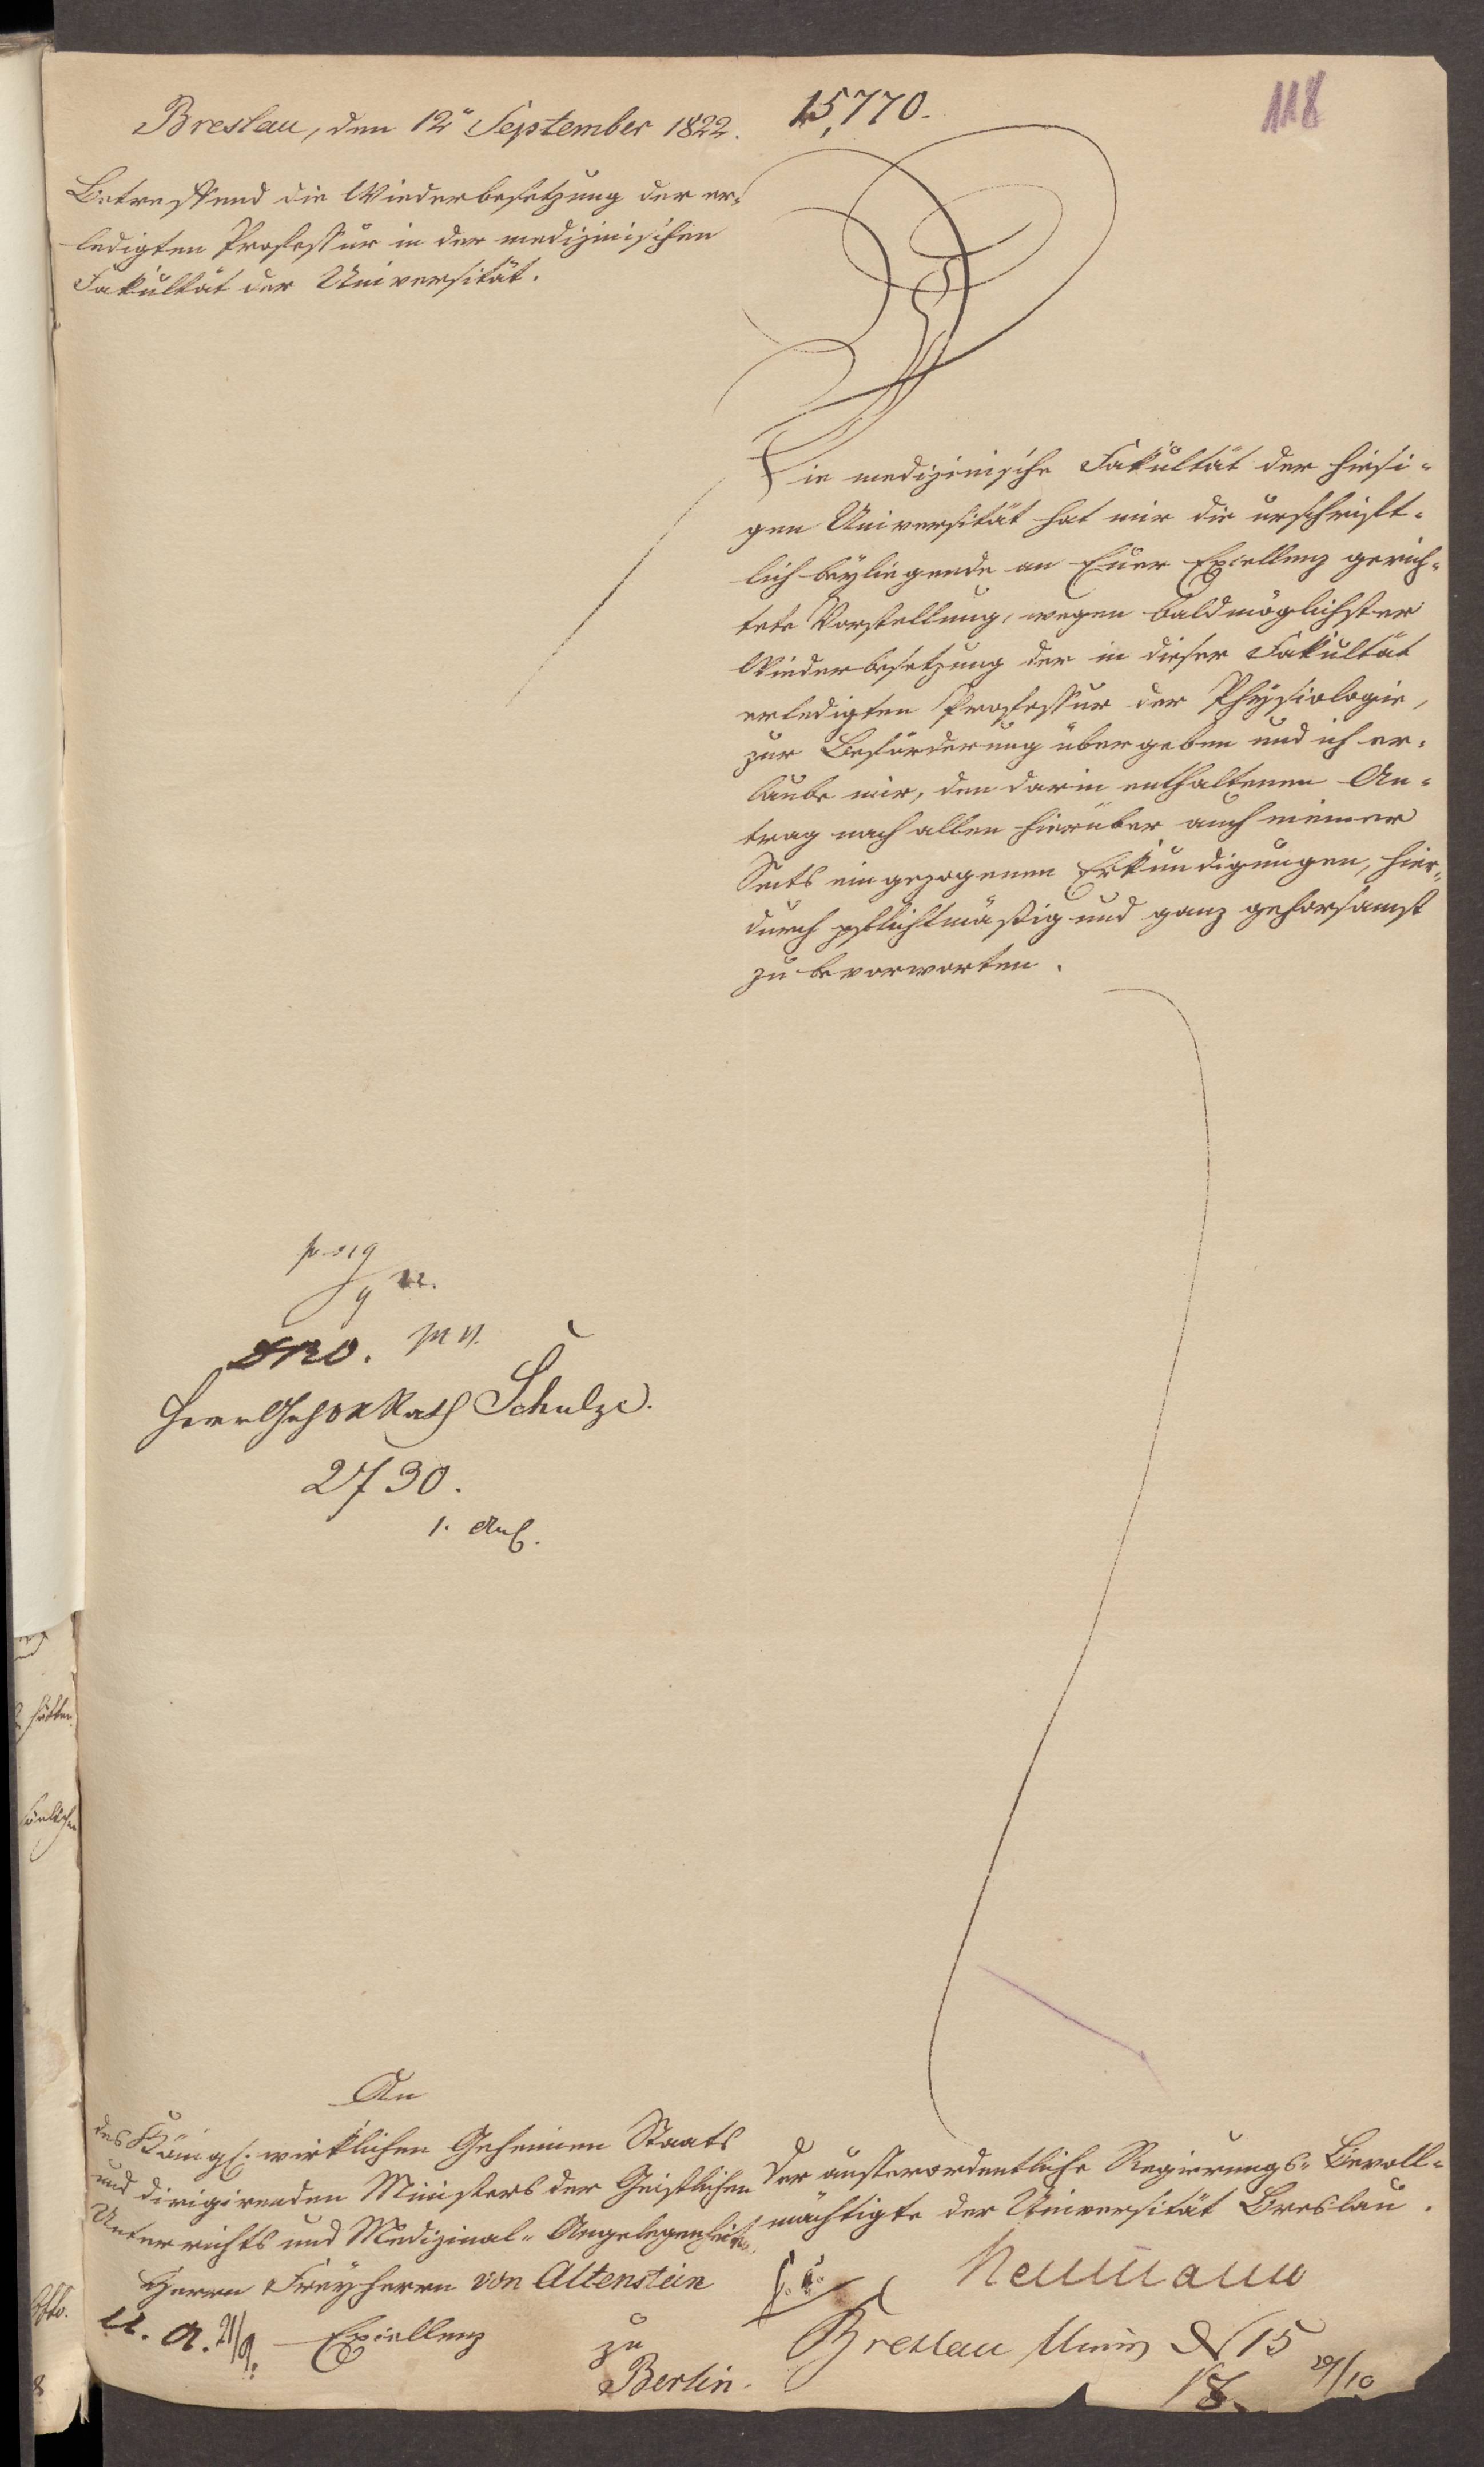 118
15,770.
Breslau, den 12n September 1822.
Betreffend die Wiederbesetzung der er-
ledigten Professur in der medizinischen
Fakultät der Universität.
Die medizinische Fakultät der hiesi-
gen Universität hat mir die urschrift-
lich beyliegende an Euer Excellenz gerich-
tete Vorstellung, wegen baldmöglichster
Wiederbesetzung der in dieser Fakultät
erledigten Professur der Physiologie,
zur Beförderung übergeben und ich er-
laube mir, den darin enthaltenen An-
trag nach allen hierüber auch meiner
Seits eingezogenen Erkundigungen, hier-
durch pflichtmäßig und ganz gehorsamst
zu bevorworten.
Herr GehORRath Schulze.
2730.
1. Anl.
An
des Königl: wirklichen Geheimen Staats
und dirigirenden Ministers der Geistlichen
Unterrichts und Medizinal-Angelegenheiten
Herrn Freyherrn von Altenstein
Excellenz
zu
Berlin.
U. A. 21/9.
Der ausserordentliche Regierungs-Bevoll-
mächtigte der Universität Breslau.
Neumann
Breslau Univ N 15
18.
29/10